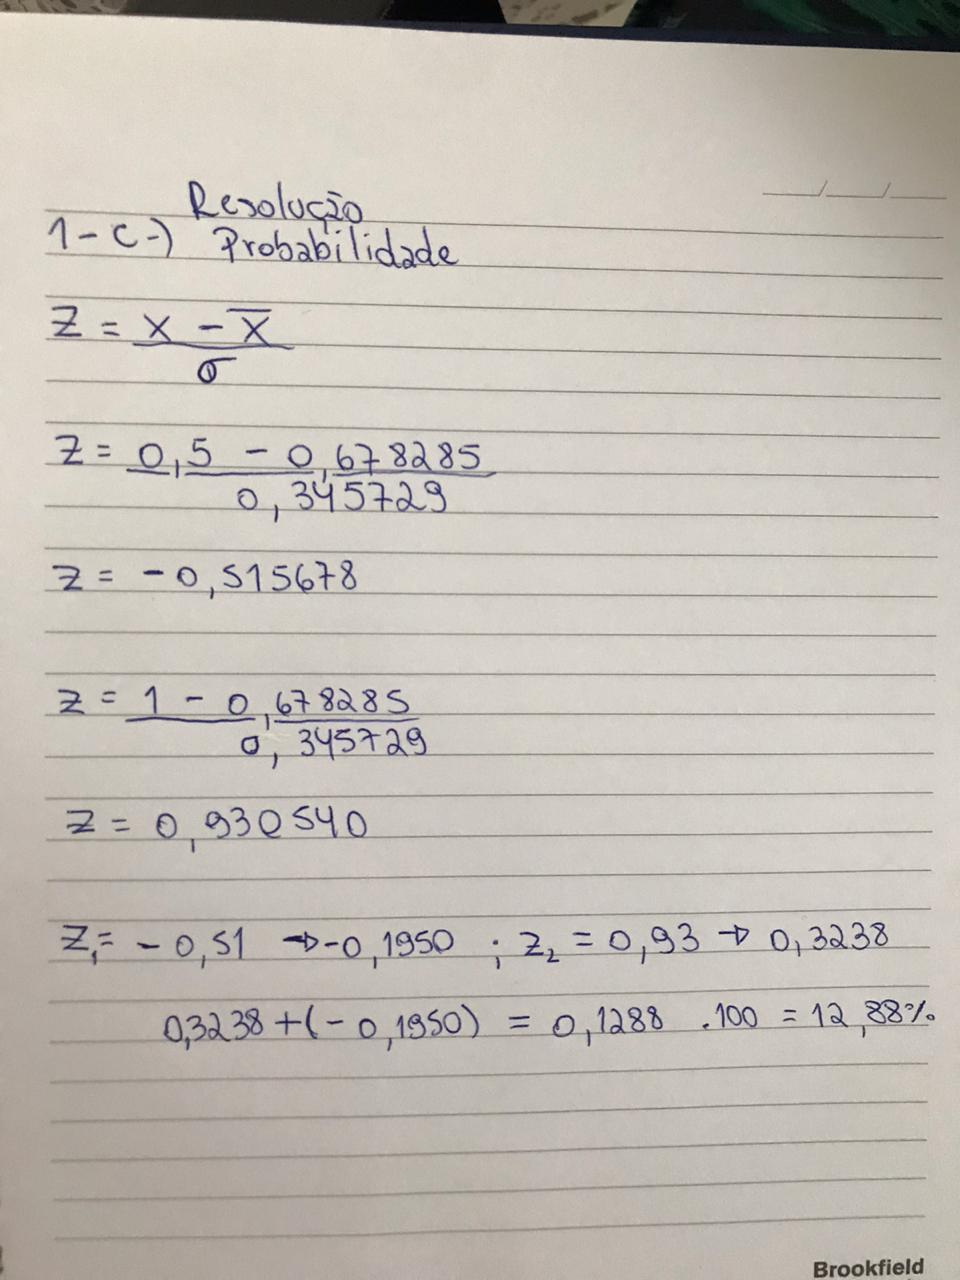 Resolução
1-c-) Probabilidade
Z = X - X̅
σ
Z = 0,5 - 0,678285
0,345729
Z = -0,515678
Z = 1 - 0,678285
0,345729
Z = 0,930540
Z₁= -0,51 → -0,1950 ; Z₂ = 0,93 → 0,3238
0,3238 + (-0,1950) = 0,1288 .100 = 12,88%
Brookfield